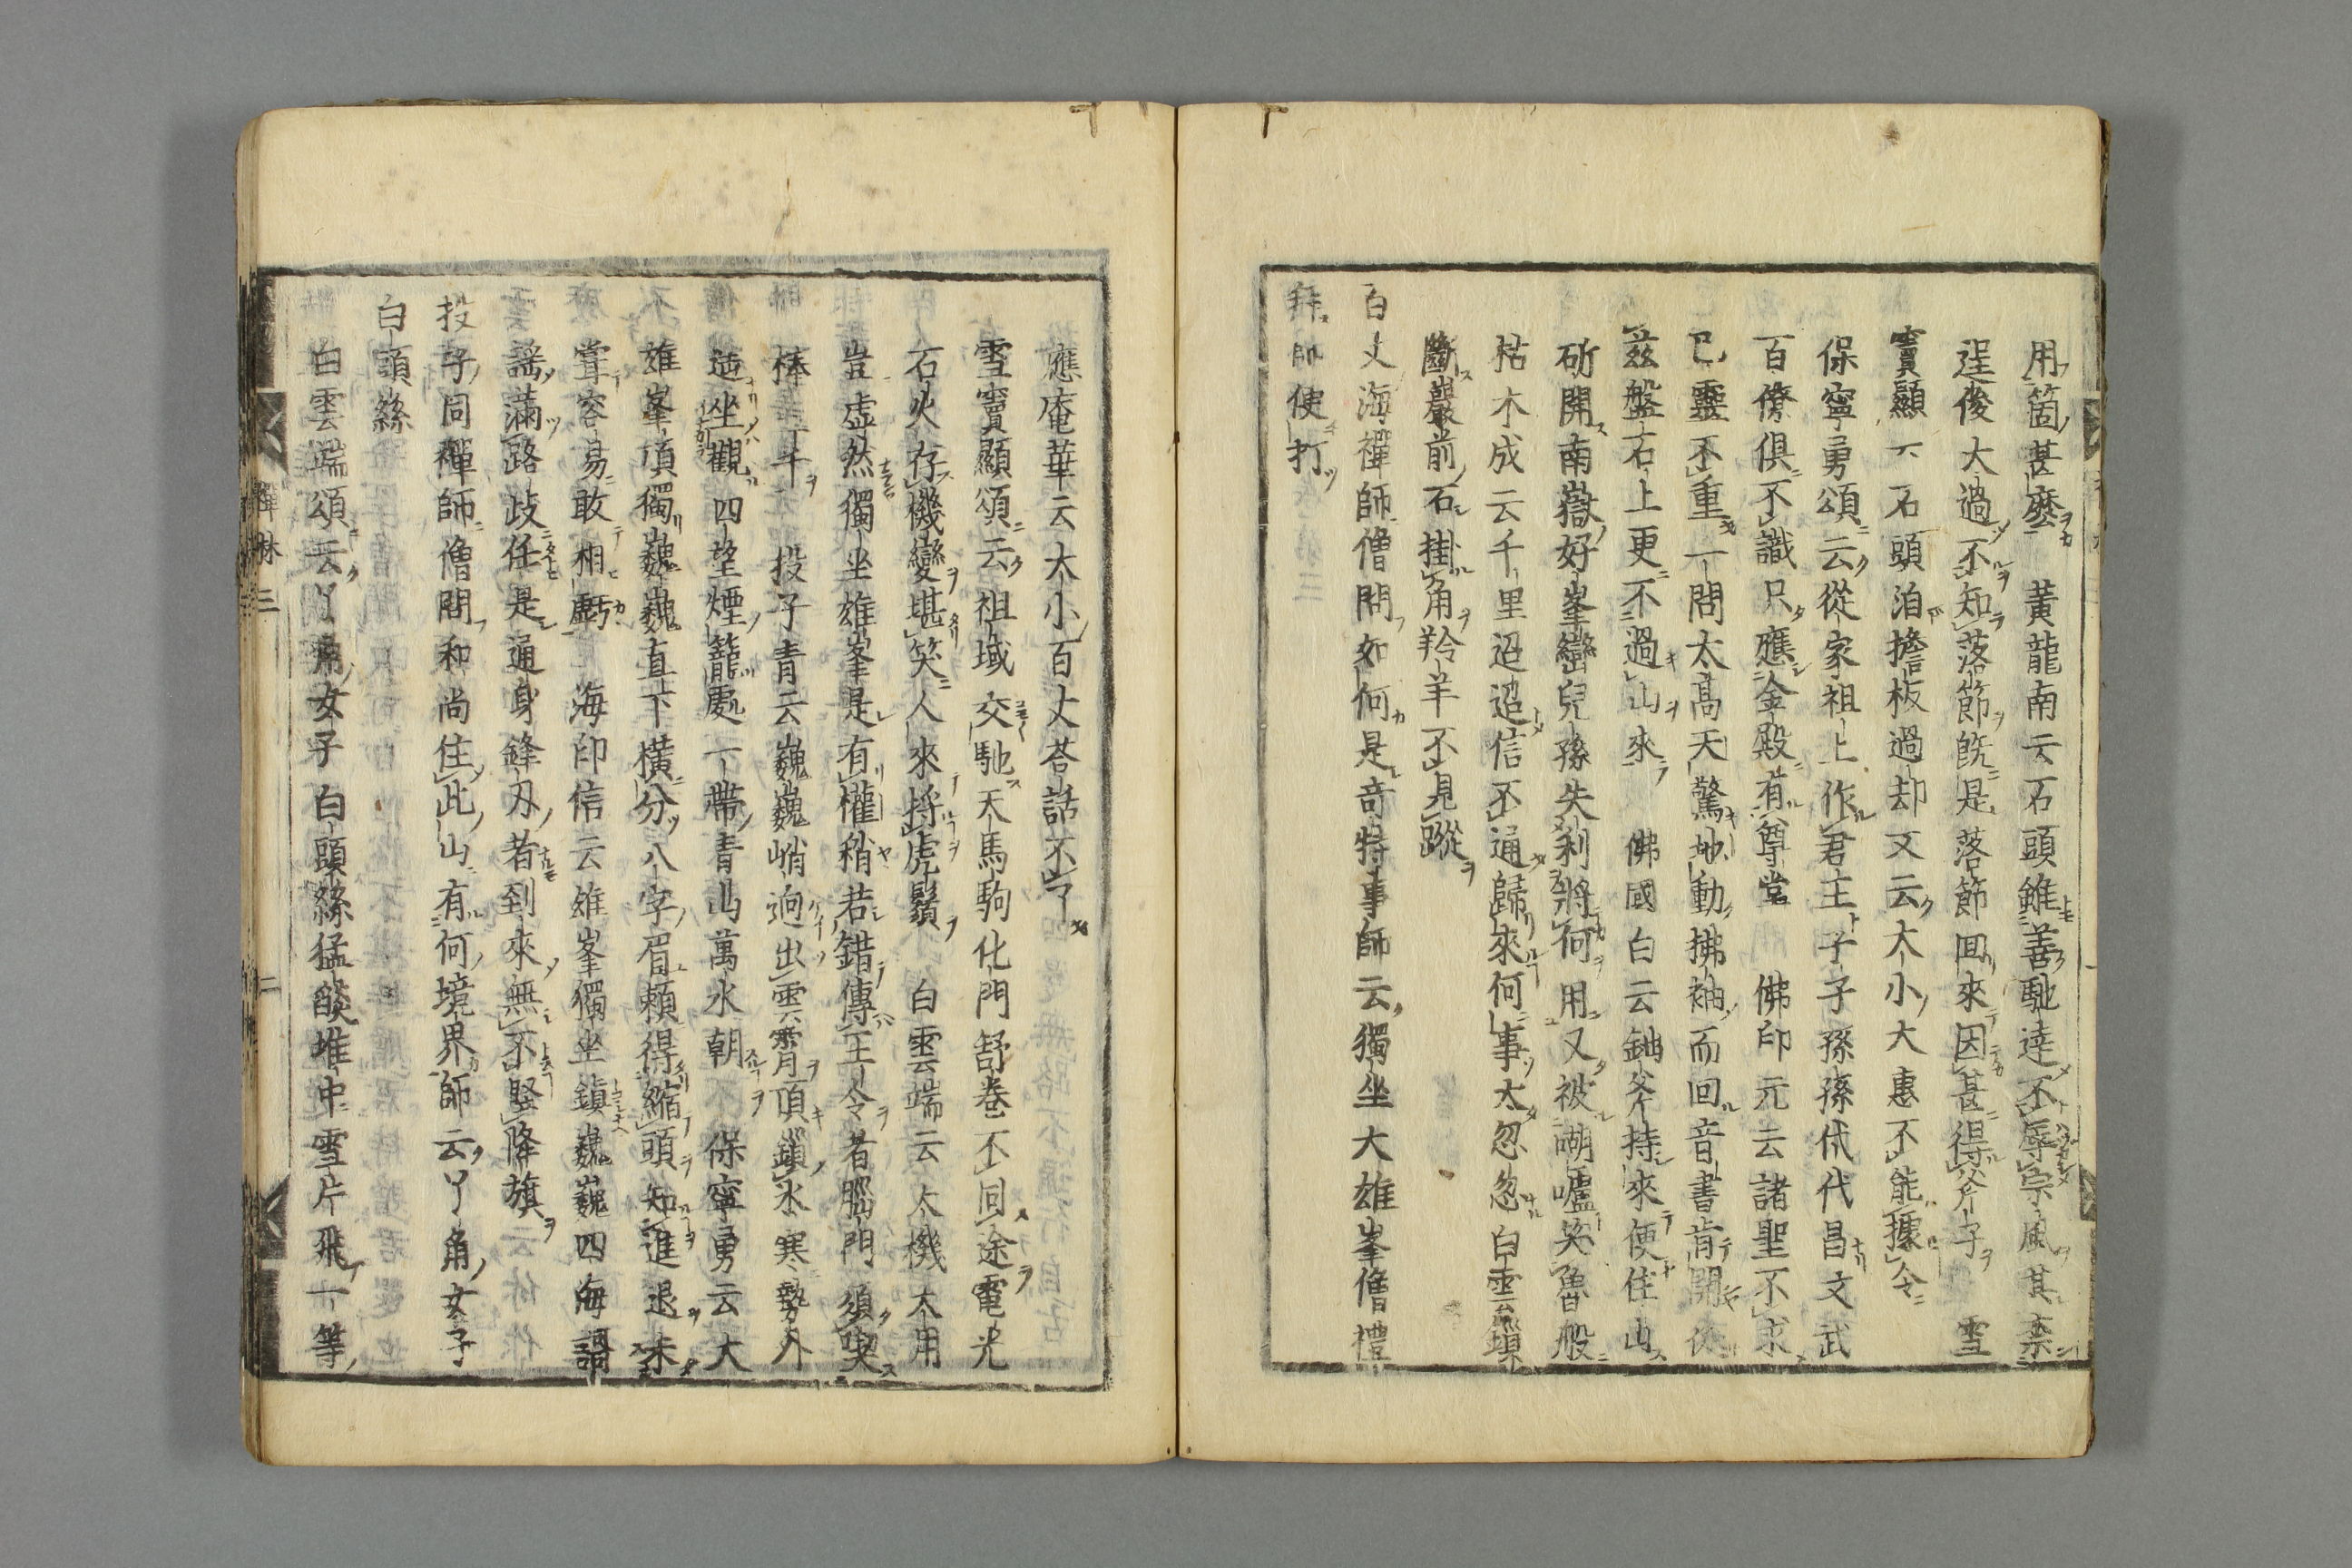 用箇甚麼　黃龍南云石頭雖善馳達不辱宗風其柰
逞俊大過不知落節既是落節回來因甚得斧子　雪
竇顯云石頭泊擔板過却又云大小大惠不能據令
保寧勇頌云從家祖上作君王子子子孫孫代代昌文武
百僚俱不識只應金殿有尊堂　佛印元云諸聖不求
已靈不重一問太高天驚地動拂袖而回音書肯開後
茲盤石上更不過山來　佛國白云鈯斧持來便住山
斫開南嶽好峯巒兒孫失利將何用又被嘲嚧笑魯般
枯木成云千里迢迢信不通歸來何事太忽忽白雲鎖
斷巖前石掛角羚羊不見蹤
百丈海禪師僧問如何是奇特事師云獨坐大雄峯僧禮
拜師便打
應庵華云大小百丈荅話不了
雪竇顯頌云祖域交馳天馬駒化門舒卷不同途電光
石火存機變堪笑人來捋虎鬚　白雲端云大機大用
豈虛然獨坐雄峯是有權稍若錯傳王令者腦門須喫
棒三千　投子青云巍巍峭迥出雲霄頂鎖冰寒勢外
遙坐觀四望煙籠處一帶青山萬水朝　保寧勇云大
雄峯頂獨巍巍直下橫分八字眉賴得縮頭知進退未
嘗容易敢相虧　海印信云雄峯獨坐鎮巍巍四海謌
謠滿路歧任是通身鋒刃者到來無不竪降旗
投子同禪師僧問和尚住此山有何境界師云丫角女子
白頭絲
白雲端頌云丫角女子白頭絲猛燄堆中雪片飛一等
禪林三
二